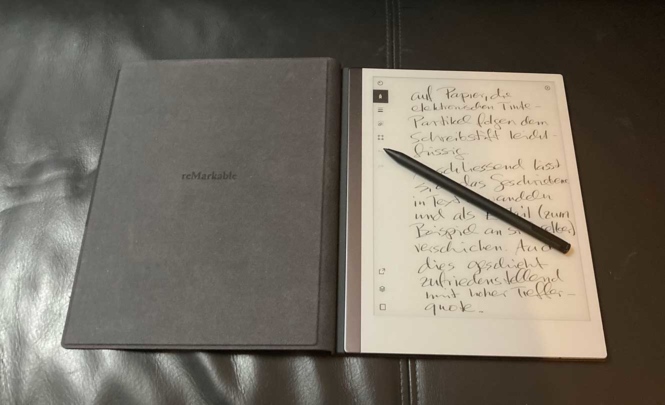 reMarkable
auf Papier, die
elektronischen Tinte-
Partikel folgen dem
Schreibstift leicht-
füssig
schliessend lässt
das Geschriebene
in Text
und als (zum
Beispiel an selber)
verschicken. Auch
dies geschieht
zufriedenstellend
mit hoher Treffer-
quote.